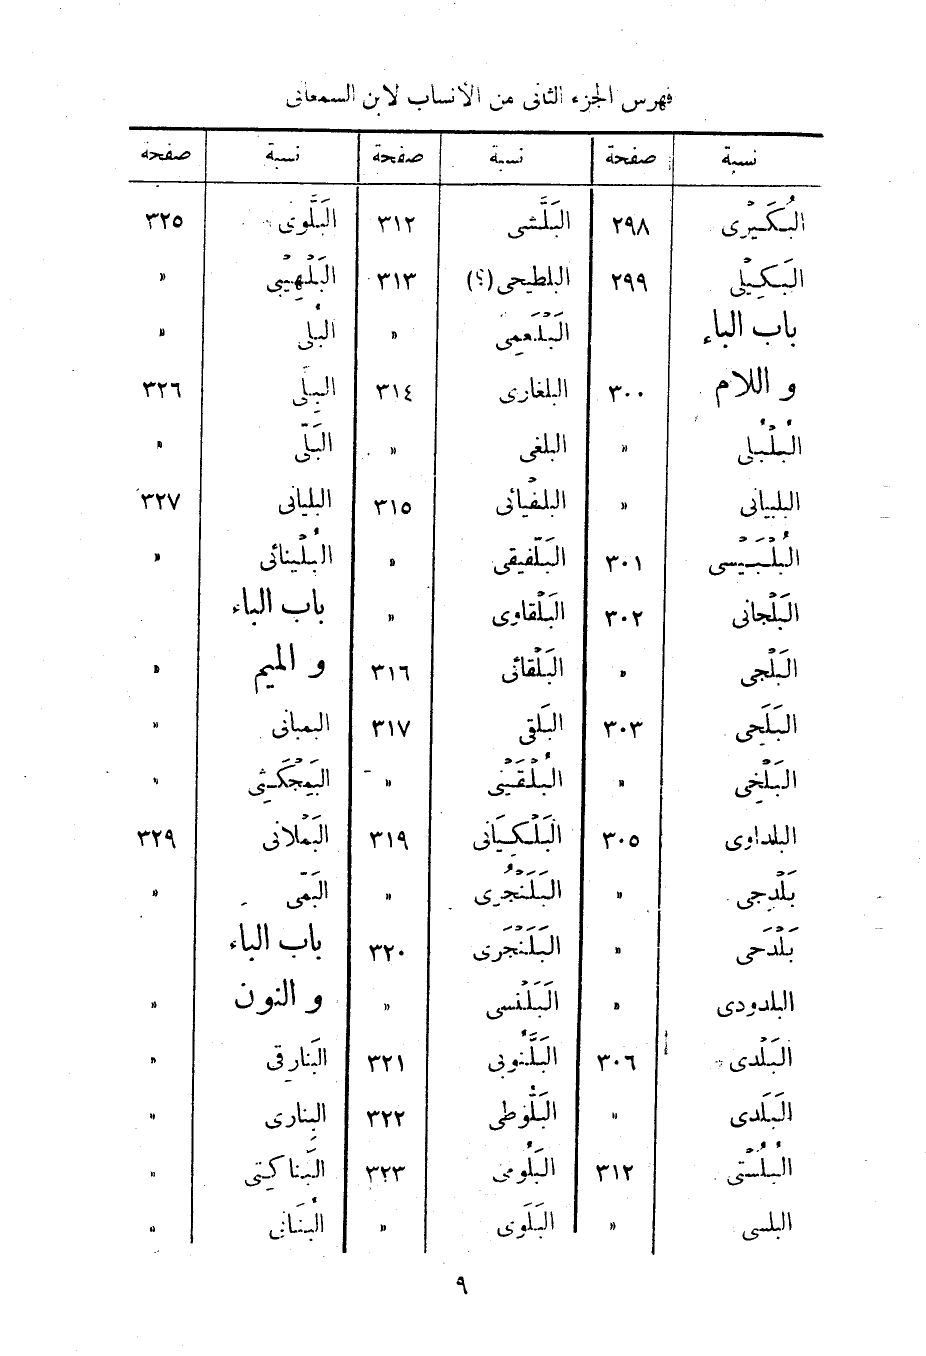 فهرس الجزء الثانى من الأنساب لابن السمعانى
نسبة صفحة نسبة صفحة نسبة صفحة
البُكَيْرى ٢٩٨ البَلَّشى ٣١٢ البَلَّوى ٣٢٥
البَكِيْلى ٢٩٩ البلطيحى (؟) ٣١٣ البَلْهِيْبى »
باب الباء البَلْعَمِى » البُلى »
و اللام ٣٠٠ البلغارى ٣١٤ البِلَى ٣٢٦
البُلْبُلى » البلغى » البَلّى »
البلبيانى » البلفْيائى ٣١٥ البليانى ٣٢٧
البُلْبَيْسى ٣٠١ البَلّفيقى » البُلْينائى »
البَلْجانى ٣٠٢ البَلْقاوى » باب الباء
البَلْجى » البَلْقائى ٣١٦ و الميم »
البَلَحِى ٣٠٣ البَلَقى ٣١٧ البمبانى »
البَلْخِى » البُلْقَيْنى » البَمِجْكَثِى »
البلداوى ٣٠٥ البَلْكِيَانى ٣١٩ البَمْلانى ٣٢٩
بَلْدِجى » البَلَنْجُرى » البَمّى »
بَلْدَحى » البَلَنْجَرى ٣٢٠ باب الباء
البلدودى » البَلَنْسى » و النون »
البَلْدى ٣٠٦ البَلَّنُوبى ٣٢١ البَنارقى »
البَلَدى » البَلُّوطى ٣٢٢ البِنارى »
البُلُسْتى ٣١٢ البَلُومى ٣٢٣ البَناكِتى »
البلسى » البَلَوى » البُنَانى »
٩